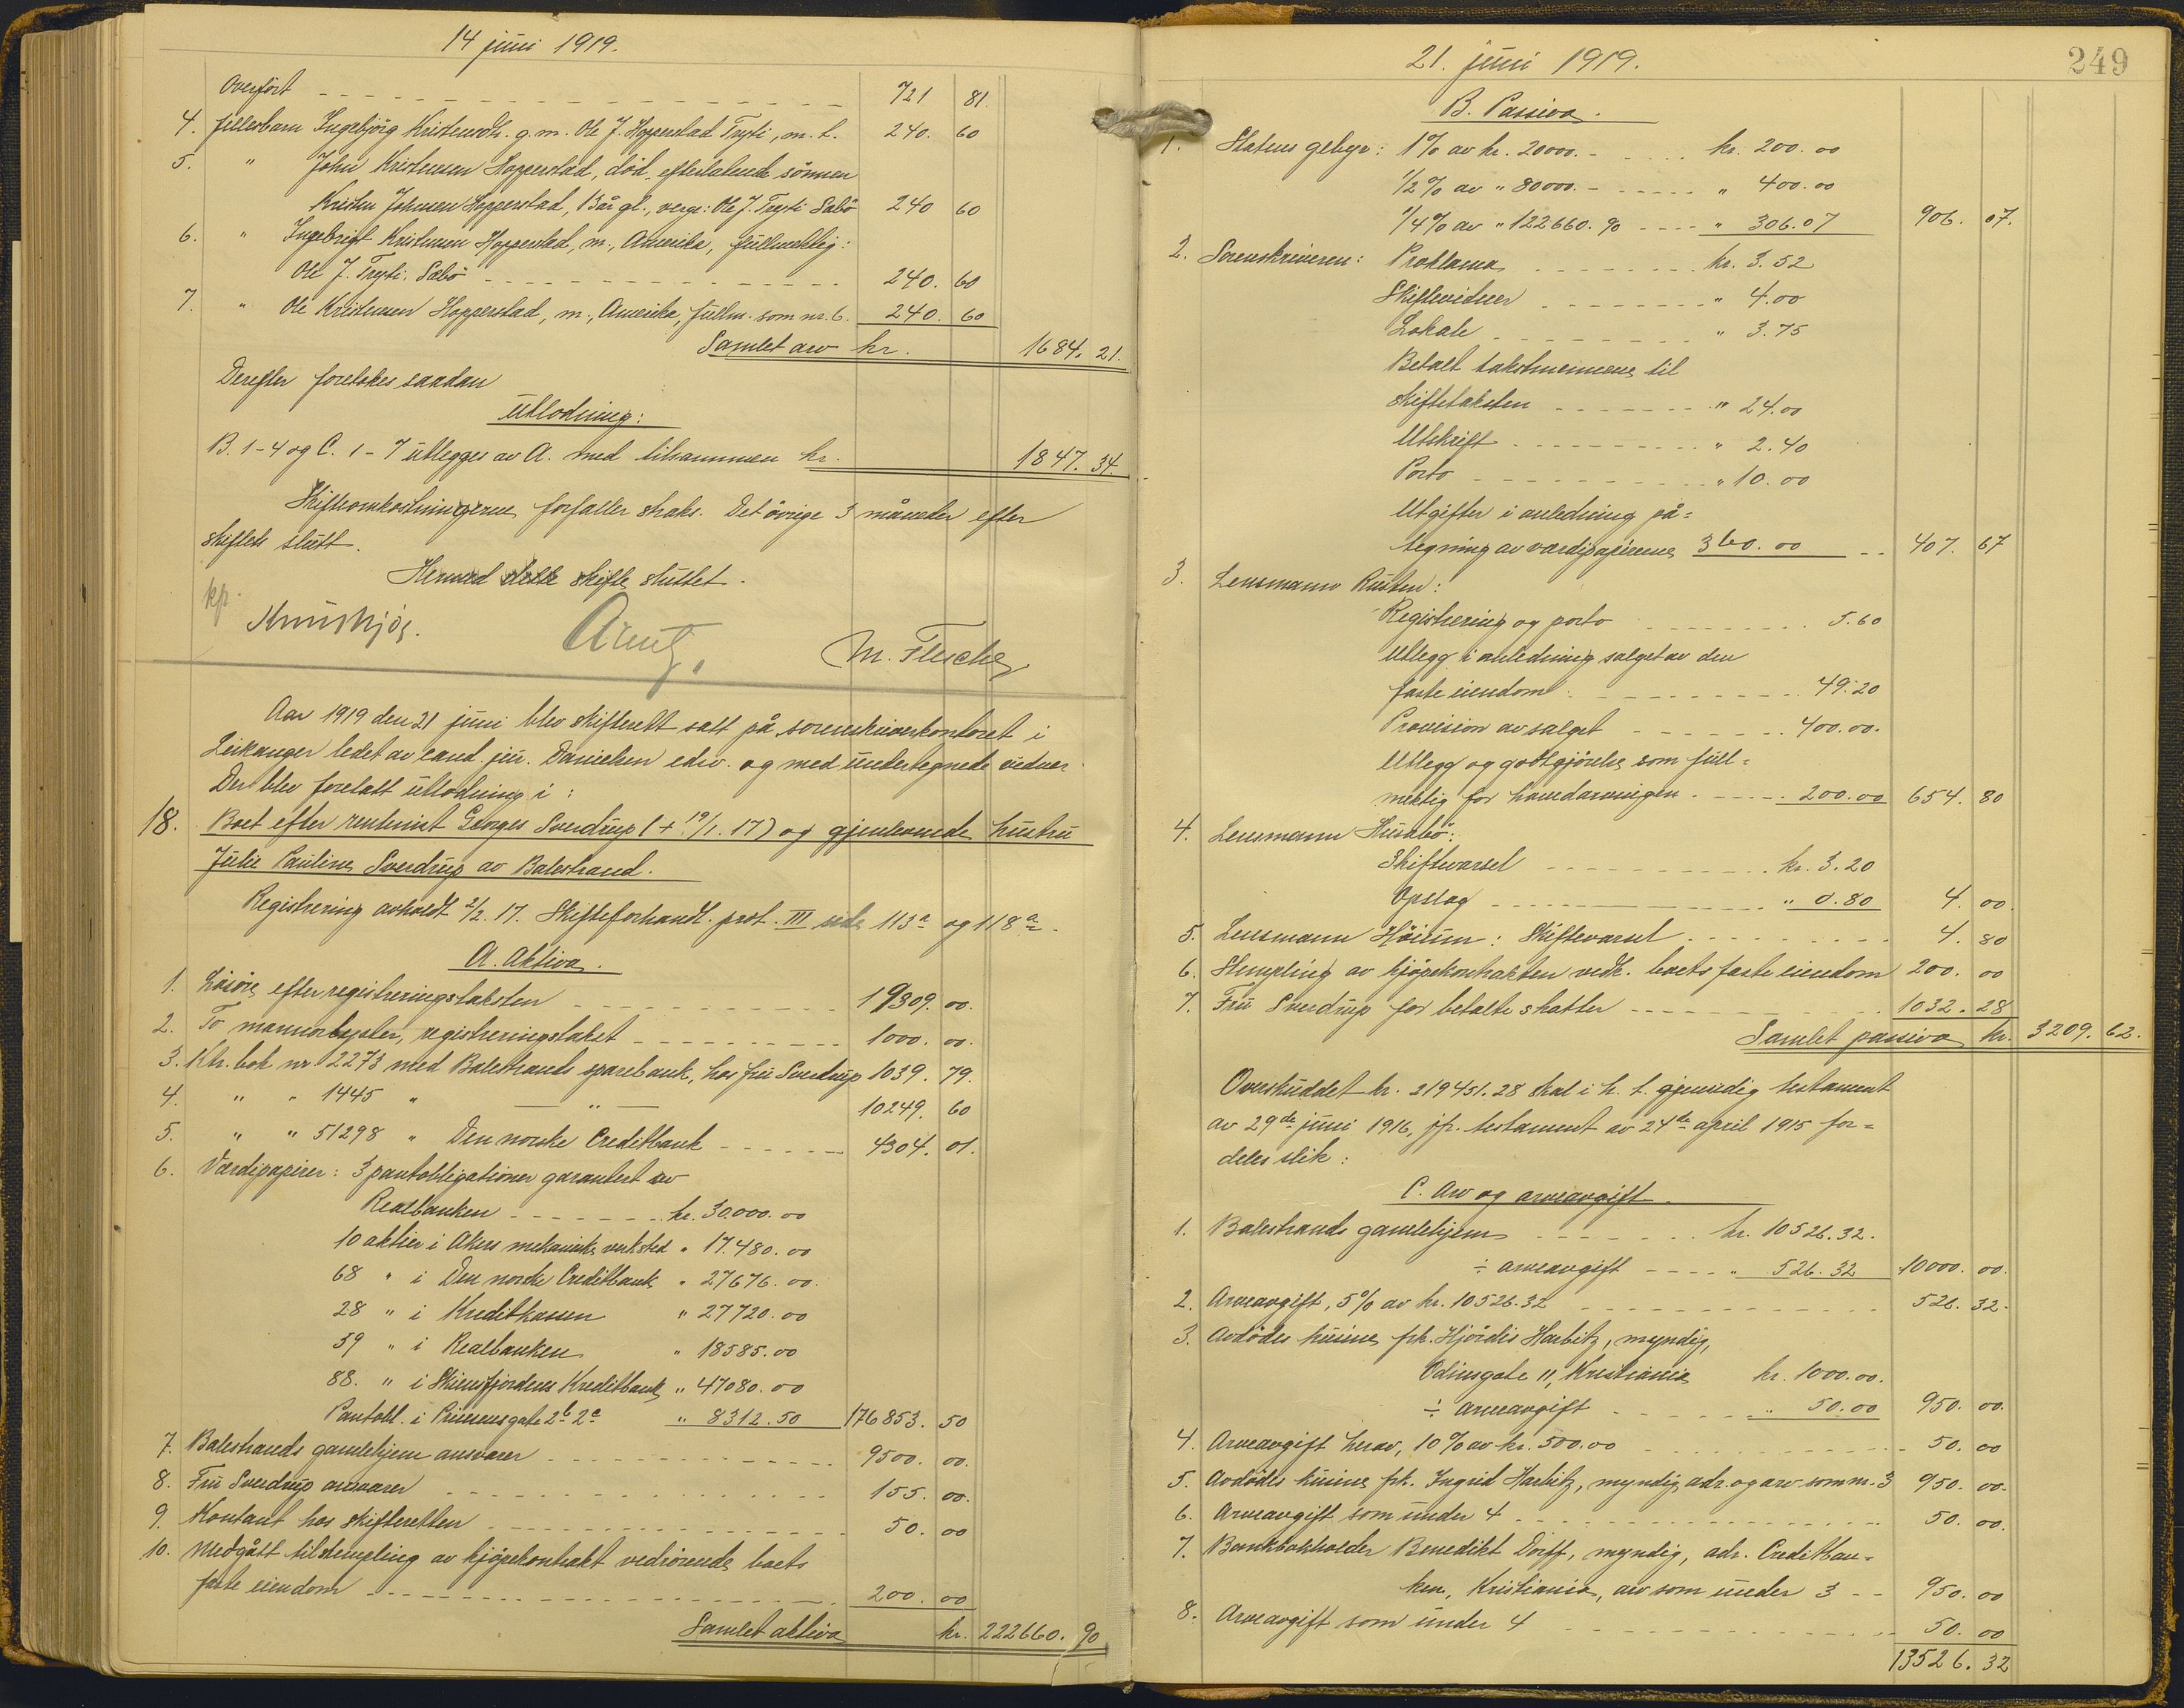 14 juni 1919.
Overfört 721 81.
4. fillesbarn Ingebjörg Kristensdt. g.m. Ole J. Hopperstad Tryti, m.t. 240. 60
5. " John Kristensen Hopperstad, död, efterlatende sönnen
Kristen Johnsen Hopperstad, 13 år gl., verge: Ole J. Tryti Sæbö 240 60
6. " Ingebrigt Kristensen Hopperstad, m., Amerika, fullmektig:
Ole J. Tryti. Sæbö 240. 60
7. " Ole Kristensen Hopperstad, m., Amerika, fullm. som nr. 6. 240. 60
Samlet arv kr. 1684. 21.
Derefter foretokes saadan
Utlodning:
B. 1-4 og C. 1-7 utlegges av A. med tilsammen kr. 1847. 34.
Skifteomkostningerne forfaller straks. Det övrige 3 måneder efter
skiftets slutt.
Hermed skifte sluttet.
kp.
M. Flesche
Aar 1919 den 21 juni blev skifterett satt på sorenskriverkontoret i
Leikanger ledet av cand. jur. Danielsen edsv. og med undertegnede vidner
Der blev foretatt utlodning i:
18. Boet efter rentenist Georges Sverdrup (+ 19/1. 17) og gjenlevende hustru
Julie Pauline Sverdrup av Balestrand.
Registrering avholdt 2/2. 17. Skifteforhandl. prot. III side 113a og 118a.
A. Aktiva.
1. Lösöre efter registreringstaksten 19309. 00.
2. To marmorbyster, registreringstakst 1000. 00.
3. Ktr. bok nr 2273 med Balestrands sparebank, hos fru Sverdrup 1039. 79.
4. " " 1445 " — " — 10249. 60
5. " " 51298 " Den norske Creditbank 4304. 01.
6. Værdipapirer: 3 pantobligationer garantert av
Realbanken kr. 30.000.00
10 aktier i Akers mekaniske verksted " 17.480.00
68 " i Den norske Creditbank " 27676.00.
28 " i Kreditkassen " 27720.00
39 " i Realbanken " 18585.00
88. " i Skiensfjordens Kreditbank " 47080.00
Pantobl. i Prinsensgate 2b 2c " 8312.50 176853. 50
7. Balestrands gamlehjem ansvarer 9500. 00.
8. Fru Sverdrup ansvarer 155. 00.
9. Kontant hos skifteretten 50. 00
10. Medgått til stempling av kjöpekontrakt vedrörende boets
faste eiendom 200. 00
Samlet aktiva kr. 222660. 90
21. juni 1919.
249
B. Passiva.
1. Statens gebyr: 1% av kr. 20000.- kr. 200.00
1/2% av " 80000.- " 400.00
1/4% av " 122660.90 " 306.07 906. 07.
2. Sorenskriveren: Proklama kr. 3.52
Skiftevidner " 4.00
Lokale " 3.75
Betalt takstmennene til
skiftetaksten " 24.00
Utskrift " 2.40
Porto " 10.00
Utgifter i anledning på=
tegning av værdipapirerne 360.00 407. 67
3. Lensmann Rusten:
Registrering og porto 5.60
Utlegg i anledning salget av den
faste eiendom 49.20
Provision av salget 400.00.
Utlegg og godtgjörelse som full=
mektig for hovedarvingen 200.00 654. 80
4. Lensmann Husabö:
Skiftevarsel kr. 3.20
Opslag " 0.80 4. 00.
5. Lensmann Höium: Skiftevarsel 4. 80
6. Stempling av kjöpekontrakten vedr. boets faste eiendom 200. 00
7. Fru Sverdrup for betalte skatter 1032. 28
Samlet passiva kr. 3209. 62.
Overskuddet kr. 219451.28 skal i h. t. gjensidig testament
av 29de juni 1916, jfr. testament av 24de april 1915 for=
deles slik:
C. Arv og arveavgift.
1. Balestrands gamlehjem kr. 10526.32.
÷ arveavgift " 526.32 10000. 00.
2. Arveavgift, 5% av kr. 10526.32 526. 32.
3. Avdödes kusine frk. Hjördis Harbitz, myndig,
Odinsgate 11, Kristiania kr. 1000.00.
÷ arveavgift " 50.00 950. 00.
4. Arveavgift herav, 10% av kr. 500.00 50. 00
5. Avdödes kusine frk. Ingrid Harbitz, myndig, adr. og arv som nr. 3 950. 00.
6. Arveavgift som under 4 50. 00.
7. Bankbokholder Benedikt Dorff, myndig, adr. Creditban=
ken, Kristiania, arv som under 3 950. 00
8. Arveavgift som under 4 50. 00
13526. 32